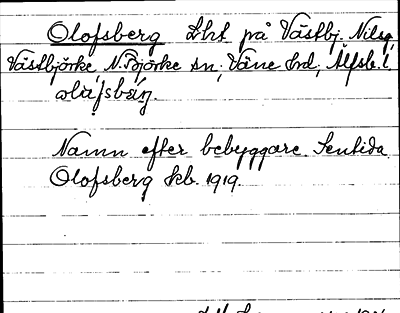 Olofsberg Lht på Västbj. Nilsg.
Västbjörke, N. Björke sn, Väne hrd, Älfsb. l.
Namn efter bebyggare. Sentida
Olofsberg kb. 1919.